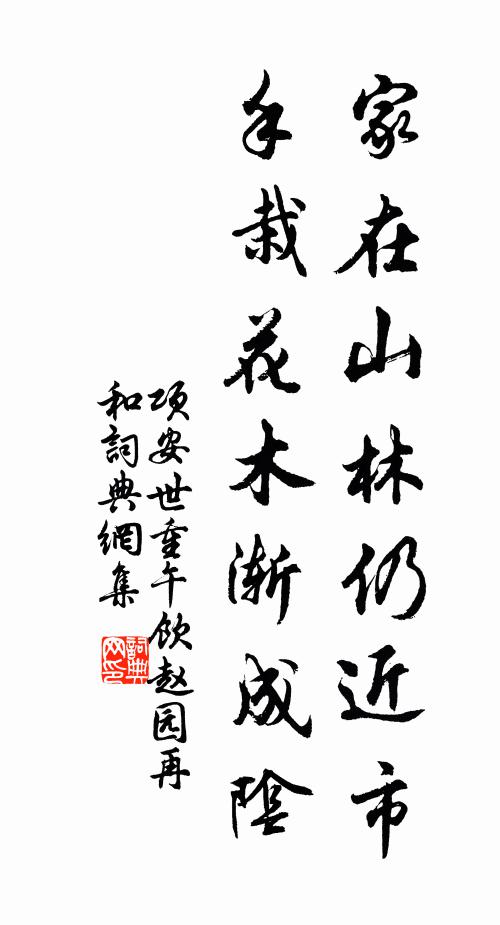 家在山林仍近市
手栽花木渐成陰
項安世重午饮赵园再
和詞典網集
詞典
网印